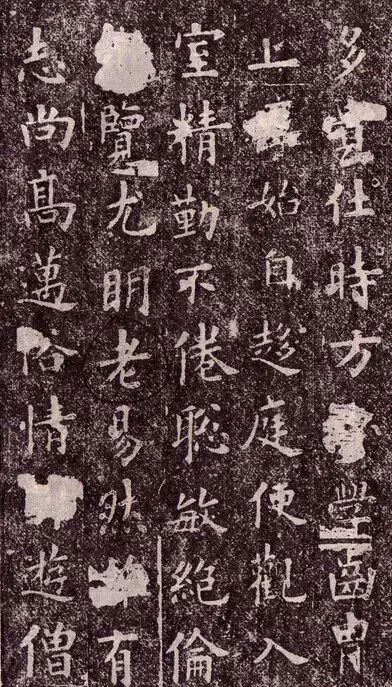 多宦仕時方學齒胄
上始自趍庭便觀入
室精勤不倦聡敏絕倫
覽尤眀老易然有
志尚髙邁俗情遊僧